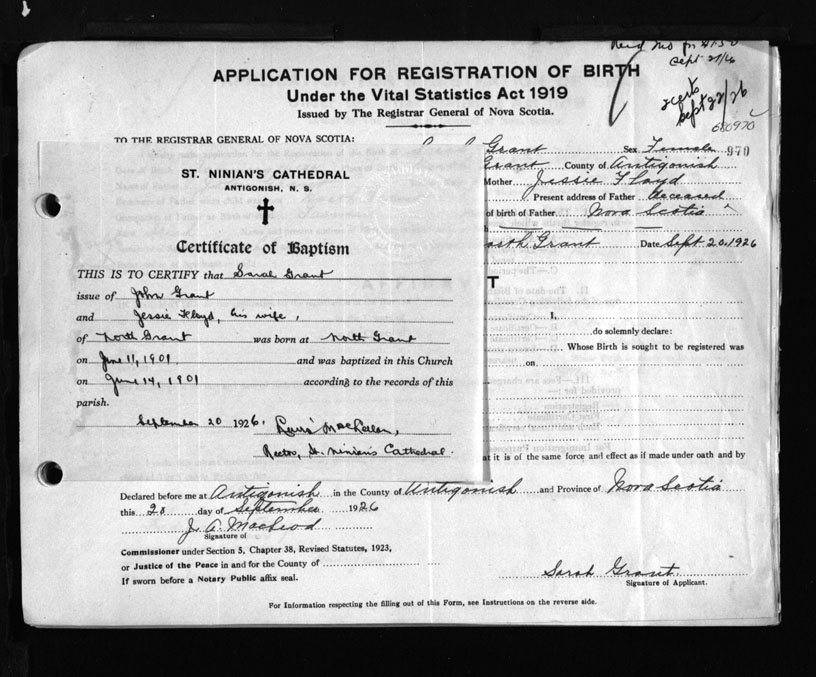 Sept 27/26
APPLICATION FOR REGISTRATION OF BIRTH
Under the Vital Statistics Act 1919
Issued by The Registrar General of Nova Scotia.
Sept 22/26
680970
TO THE REGISTRAR GENERAL OF NOVA SCOTIA:
Grant Sex Female 970
Grant County of Antigonish
Mother Jessie Floyd
Present address of Father Deceased
of birth of Father Nova Scotia
Grant Date Sept 20, 1926
T
I,
do solemnly declare:
Whose Birth is sought to be registered was
on
at it is of the same force and effect as if made under oath and by
ST. NINIAN'S CATHEDRAL
ANTIGONISH, N. S.
Certificate of Baptism
THIS IS TO CERTIFY that Sarah Grant
issue of John Grant
and Jessie Floyd, his wife,
of North Grant was born at North Grant
on June 11, 1901 and was baptized in this Church
on June 14, 1901 according to the records of this
parish.
September 20 1926.
Rector, St. Ninian's Cathedral.
Declared before me at Antigonish in the County of Antigonish and Province of Nova Scotia
this 20 day of September 1926
J. A. MacLeod
Signature of
Commissioner under Section 5, Chapter 38, Revised Statutes, 1923,
or Justice of the Peace in and for the County of
If sworn before a Notary Public affix seal.
Sarah Grant
Signature of Applicant.
For Information respecting the filling out of this Form, see Instructions on the reverse side.